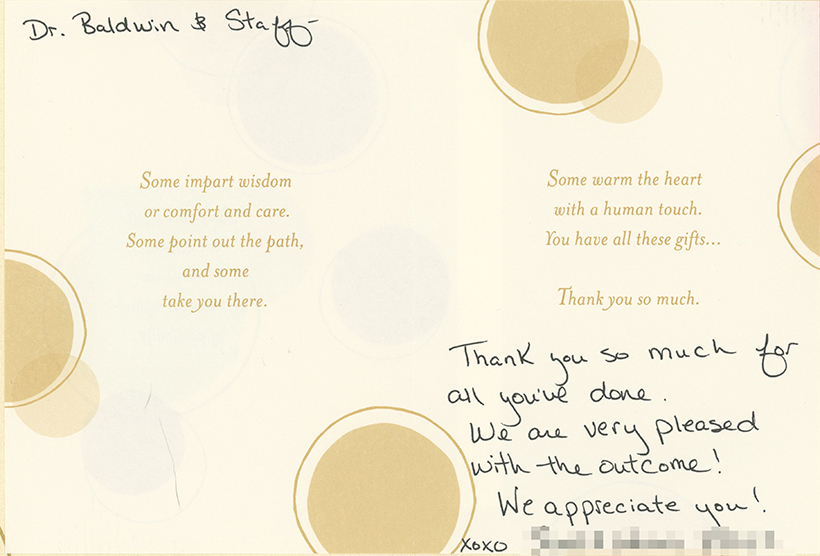 Dr. Baldwin & Staff-
Some impart wisdom
or comfort and care.
Some point out the path,
and some
take you there.
Some warm the heart
with a human touch.
You have all these gifts...
Thank you so much.
Thank you so much for
all you've done.
We are very pleased
with the outcome!
We appreciate you!
xoxo